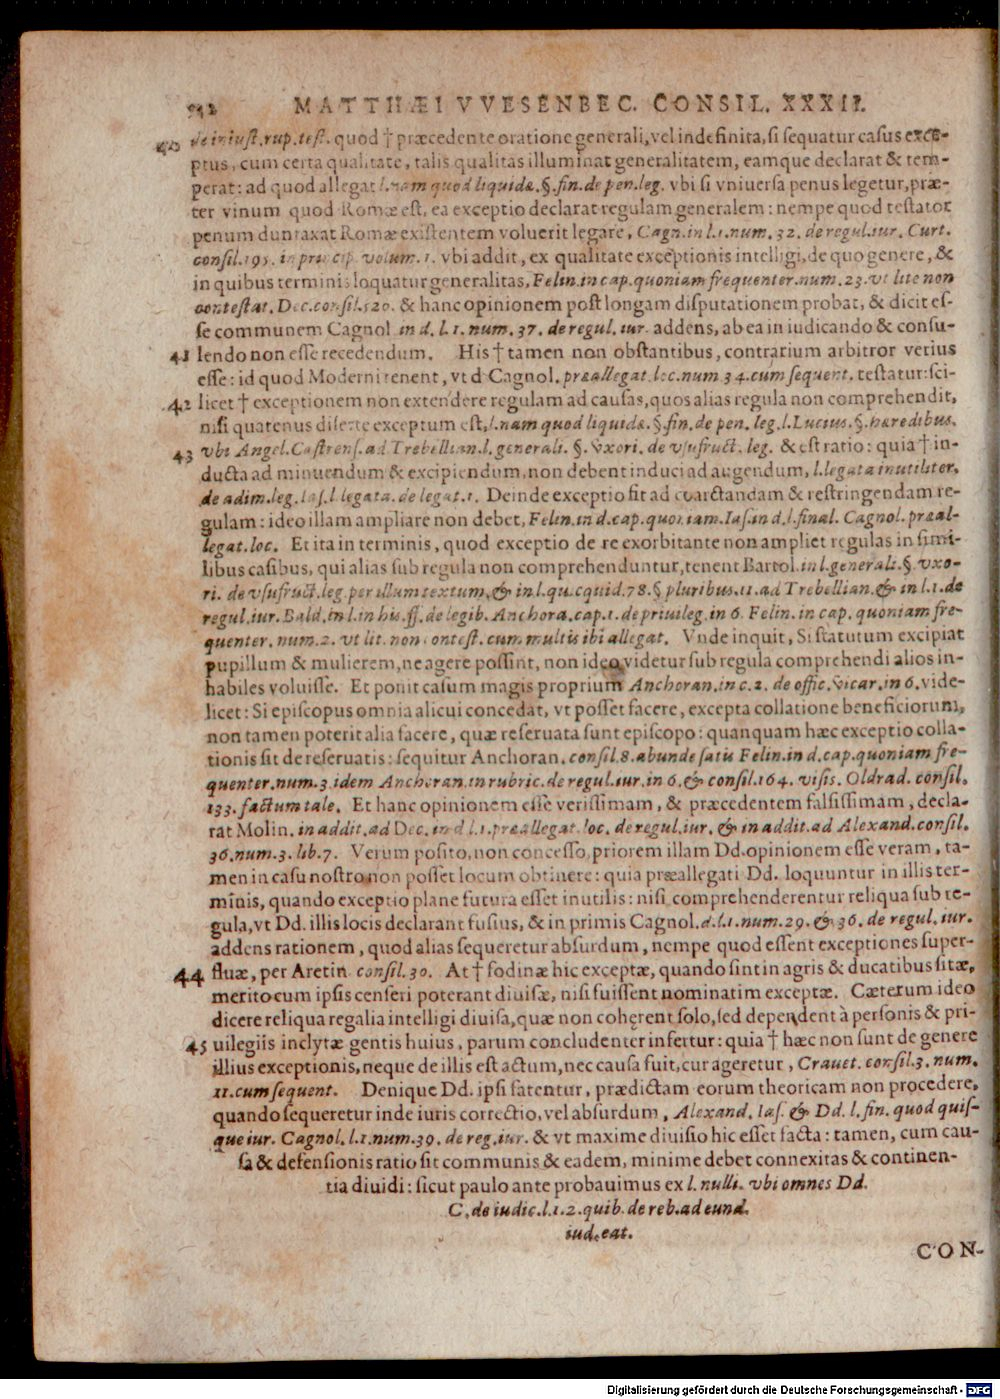 MATTHÆI VVESENBEC. CONSIL. XXXII.
40 de iniust. rup. test. quod † præcedente oratione generali, vel indefinita, si sequatur casus exce-
ptus, cum certa qualitate, talis qualitas illuminat generalitatem, eamque declarat & tem-
perat: ad quod allegat l. nam quod liquidæ. §. fin. de pen. leg. vbi si vniuersa penus legetur, præ-
ter vinum quod Romæ est, ea exceptio declarat regulam generalem: nempe quod testator
penum duntaxat Romæ existentem voluerit legare, Cagn. in l. 1. num. 32. de regul. iur. Curt.
consil. 195. in princip. volum. 1. vbi addit, ex qualitate exceptionis intelligi, de quo genere, &
in quibus terminis loquatur generalitas, Felin. in cap. quoniam frequenter. num. 23. vt lite non
contestat. Dec. consil. 520. & hanc opinionem post longam disputationem probat, & dicit es-
se communem Cagnol. in d. l. 1. num. 37. de regul. iur. addens, ab ea in iudicando & consu-
41 lendo non esse recedendum. His † tamen non obstantibus, contrarium arbitror verius
esse: id quod Moderni tenent, vt d. Cagnol. præallegat. loc. num. 34. cum sequent. testatur: sci-
42 licet † exceptionem non extendere regulam ad causas, quos alias regula non comprehendit,
nisi quatenus diserte exceptum est, l. nam quod liquidæ. §. fin. de pen. leg. l. Lucius. §. hæredibus.
43 vbi Angel. Castrens. ad Trebellian. l. generali. §. vxori. de vsufruct. leg. & est ratio: quia † in-
ducta ad minuendum & excipiendum, non debent induci ad augendum, l. legata inutiliter.
de adim. leg. Ias. l. legata. de legat. 1. Deinde exceptio fit ad coarctandam & restringendam re-
gulam: ideo illam ampliare non debet, Felin. in d. cap. quoniam. Ias. in d. l. final. Cagnol. præal-
legat. loc. Et ita in terminis, quod exceptio de re exorbitante non ampliet regulas in simi-
libus casibus, qui alias sub regula non comprehenduntur, tenent Bartol. in l. generali. §. vxo-
ri. de vsufruct. leg. per illum textum, & in l. quicquid. 78. § pluribus. 11. ad Trebellian. & in l. 1. de
regul. iur. Bald. in l. in his. ff. de legib. Anchora. cap. 1. de priuileg. in 6. Felin. in cap. quoniam fre-
quenter. num. 2. vt lit. non contest. cum multis ibi allegat. Vnde inquit, Si statutum excipiat
pupillum & mulierem, ne agere possint, non ideo videtur sub regula comprehendi alios in-
habiles voluisse. Et ponit casum magis proprium Anchoran. in c. 2. de offic. vicar. in 6. vide-
licet: Si episcopus omnia alicui concedat, vt posset facere, excepta collatione beneficiorum,
non tamen poterit alia facere, quæ reseruata sunt episcopo: quanquam hæc exceptio colla-
tionis sit de reseruatis: sequitur Anchoran. consil. 8. abunde satis Felin. in d. cap. quoniam fre-
quenter. num. 3. idem Anchoran. in rubric. de regul. iur. in 6. & consil. 164. visis. Oldrad. consil.
133. factum tale. Et hanc opinionem esse verissimam, & præcedentem falsissimam, decla-
rat Molin. in addit. ad Dec. in d. l. 1. præallegat. loc. de regul. iur. & in addit. ad Alexand. consil.
36. num. 3. lib. 7. Verum posito, non concesso, priorem illam Dd. opinionem esse veram, ta-
men in casu nostro non posset locum obtinere: quia præallegati Dd. loquuntur in illis ter-
minis, quando exceptio plane futura esset inutilis: nisi comprehenderentur reliqua sub re-
gula, vt Dd. illis locis declarant fusius, & in primis Cagnol. d. l. 1. num. 29. & 36. de regul. iur.
addens rationem, quod alias sequeretur absurdum, nempe quod essent exceptiones super-
44 fluæ, per Aretin. consil. 30. At † fodinæ hic exceptæ, quando sint in agris & ducatibus sitæ,
merito cum ipsis censeri poterant diuisæ, nisi fuissent nominatim exceptæ. Cæterum ideo
dicere reliqua regalia intelligi diuisa, quæ non cohęrent solo, sed dependent à personis & pri-
45 uilegiis inclytæ gentis huius, parum concludenter infertur: quia † hæc non sunt de genere
illius exceptionis, neque de illis est actum, nec causa fuit, cur ageretur, Crauet. consil. 3. num.
11. cum sequent. Denique Dd. ipsi fatentur, prædictam eorum theoricam non procedere,
quando sequeretur inde iuris correctio, vel absurdum, Alexand. Ias. & Dd. l. fin. quod quis-
que iur. Cagnol. l. 1. num. 39. de reg. iur. & vt maxime diuisio hic esset facta: tamen, cum cau-
sa & defensionis ratio sit communis & eadem, minime debet connexitas & continen-
tia diuidi: sicut paulo ante probauimus ex l. nulli. vbi omnes Dd.
C. de iudic. l. 1. 2. quib. de reb. ad eund.
iud. eat.
CON-
Digitalisierung gefördert durch die Deutsche Forschungsgemeinschaft - DFG